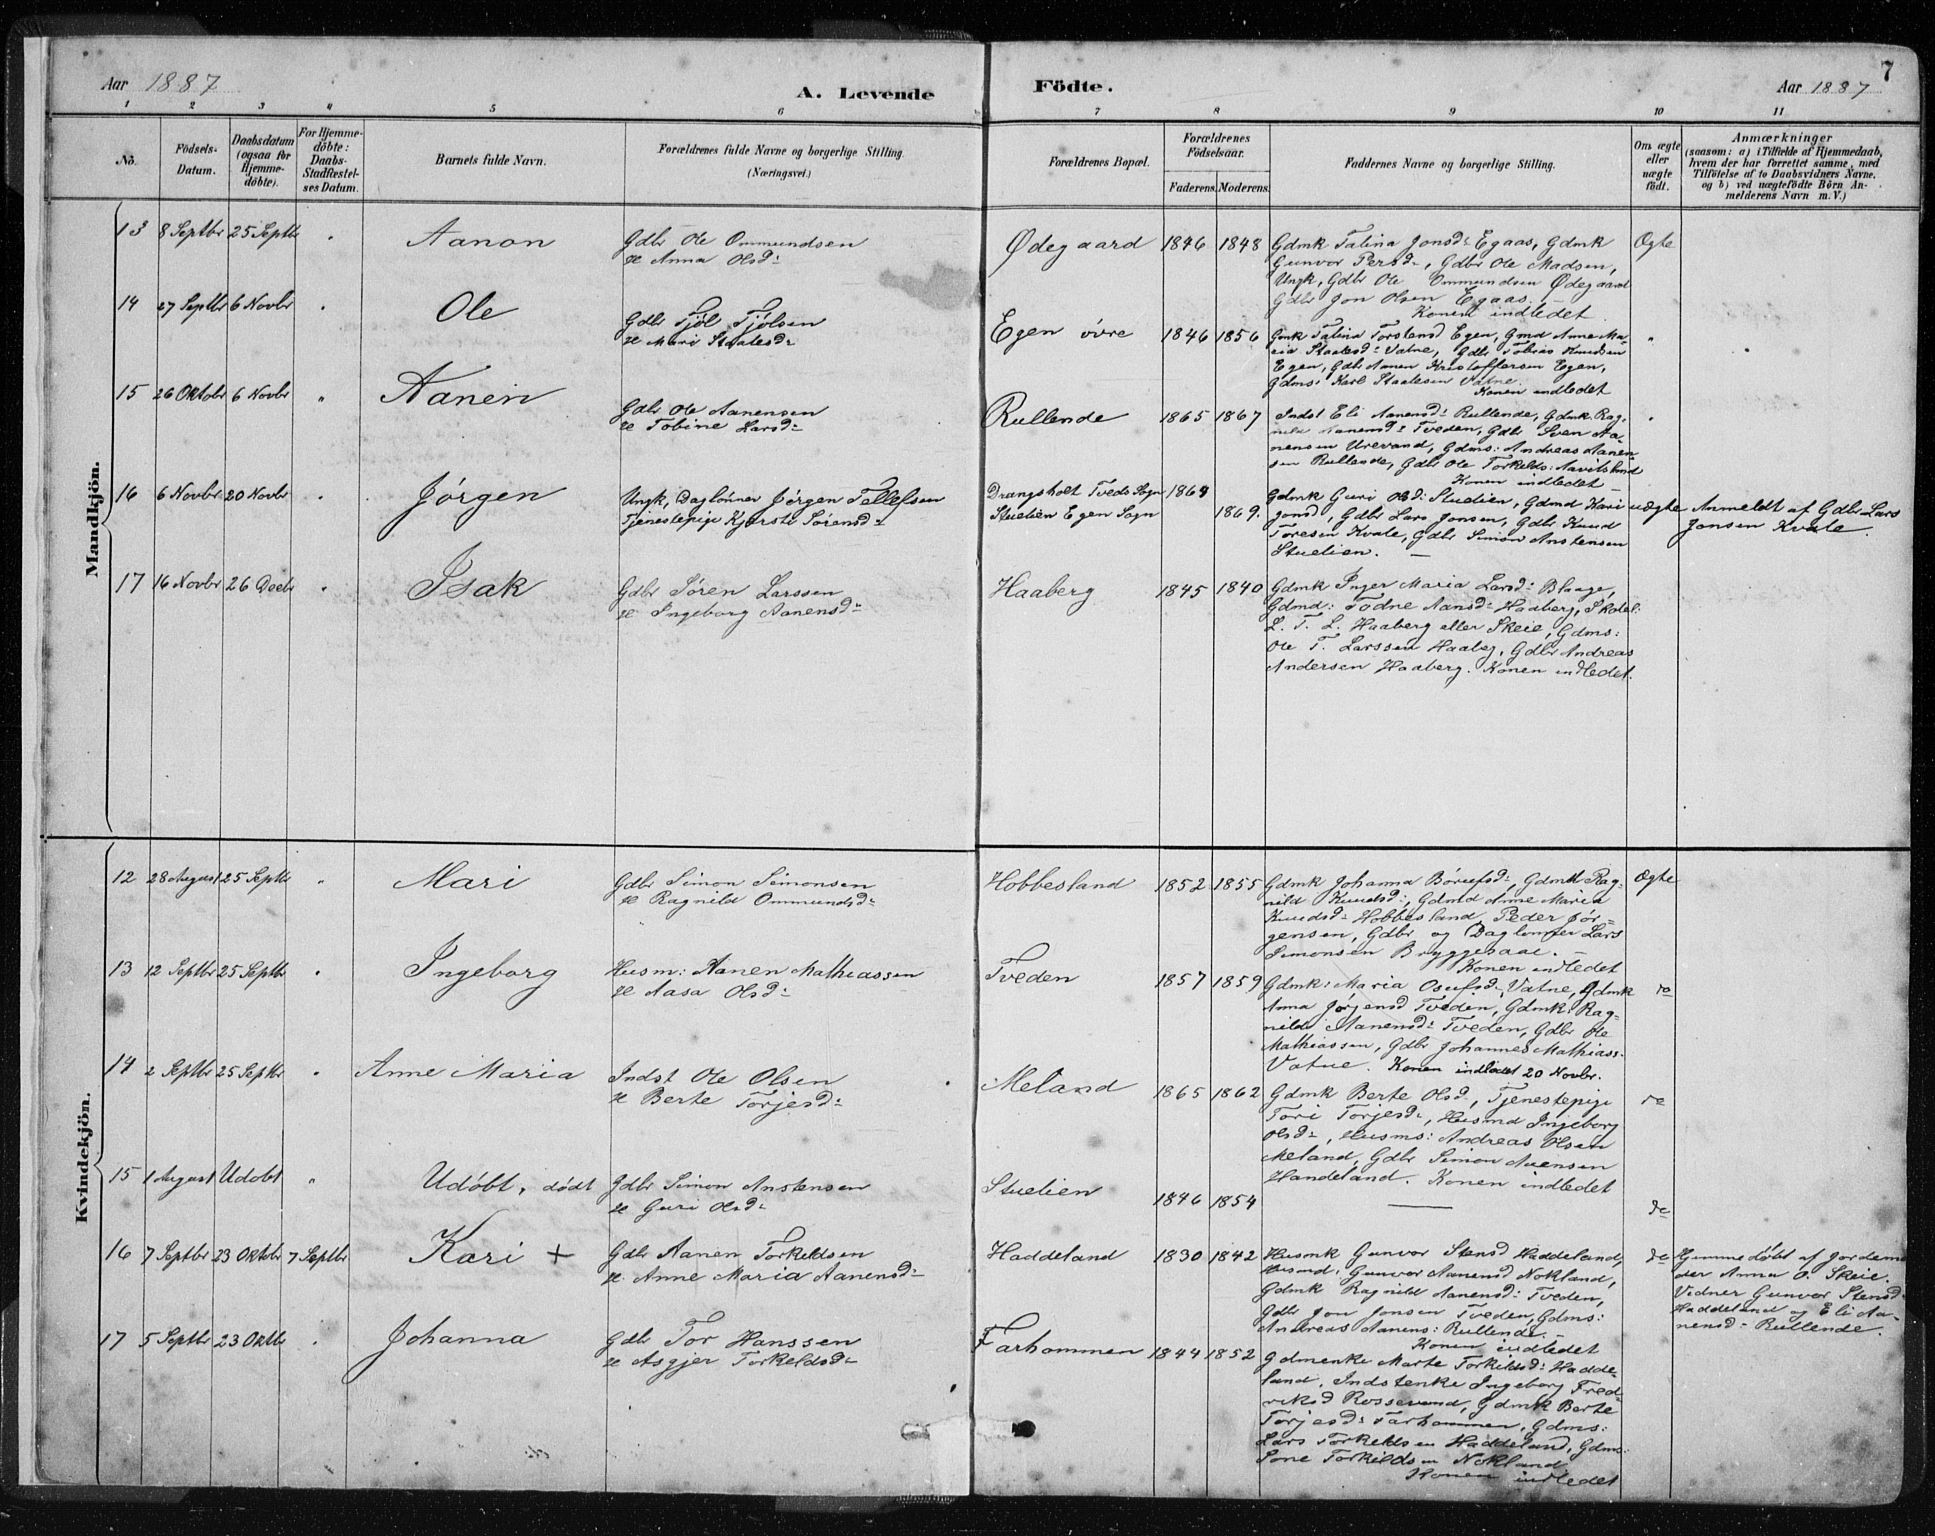 7
Aar 1887
A. Levende
Födte.
Aar 1887
1 2 3 4 5 6 7 8 9 10 11
No.
Födsels-
Datum.
Daabsdatum
(ogsaa for
Hjemme-
döbte).
For Hjemme-
döbte:
Daabs-
Stadfæstel-
ses Datum.
Barnets fulde Navn.
Forældrenes fulde Navne og borgerlige Stilling
(Næringsvei.)
Forældrenes Bopæl.
Forældrenes
Födselsaar.
Faderens. Moderens.
Faddernes Navne og borgerlige Stilling.
Om ægte
eller
uægte
födt.
Anmærkninger
(saasom: a) i Tilfælde af Hjemmedaab,
hvem der har forrettet samme, med
Tilföielse af to Daabsvidners Navne,
og b) ved uægtefödte Börn An-
melderens Navn m.V.)
Mandkjön.
13 8 Septbr 25 Septbr " Aanon
Gdbr Ole Ommundsen
& Anna Olsd:
Ødegaard 1846 1848
Gdmk Talina Jonsd: Egaas, Gdmk
Gunvor Persd:, Gdbr Ole Madsen,
Ungk, Gdbr Ole Ommundsen Ødegaard
Gdbr Jon Olsen Egaas. —
Konen indledet
Ægte
14 27 Septbr 6 Novbr " Ole
Gdbr Fjöl Fjölsen
& Mari Staalesd:
Egen övre 1846 1856
Gmk Talina Torstensd Egen, Gmd Anne Ma-
ria Staalesd: Vatne, Gdbr Tobias Knudsen
Egen, Gdbr Aanen Kristoffersen Egen,
Gdms: Karl Staalesen Vatne.
Konen indledet
"
15 26 Oktobr 6 Novbr " Aanen
Gdbr Ole Aanensen
& Tobine Larsd:
Rullende 1865 1867
Indst Eli Aanensd: Rullende, Gdmk Rag-
nild Aanensd: Tveden, Gdbr Sven Aa-
nensen Urevand, Gdms: Andreas Aanen-
sen Rullende, Gdbr Ole Torkelds:
Konen indledet
"
16 6 Novbr 20 Novbr " Jörgen
Ungk, Daglönner Jörgen Tellefsen
Tjenestepige Kjersti Sörensd:
Drangsholt Tveds Sogn 1864
Stuelien Egen Sogn 1869.
Gdmk Guri Olsd: Stuelien, Gdmd Kari
Jonsd, Gdbr Lars Jonsen, Gdbr Knud
Toresen Kvale, Gdbr Simon Anstensen
Stuelien. —
uægte
Anmeldt af Gdbr Lars
Jonsen Kvale.
17 16 Novbr 26 Decbr " Isak
Gdbr Sören Larssen
& Ingeborg Aanensd:
Haaberg 1845 1840
Gdmk Inger Maria Larsd: Blaage,
Gdmd: Todne Aansd: Haaberg, Skolel:
L. T. L. Haaberg eller Skeie, Gdms:
Ole T. Larssen Haabeg, Gdbr Andreas
Andersen Haaberg. Konen indledet.
Kvindekjön.
12 28 August 25 Septbr " Mari
Gdbr Simon Simonsen
& Ragnild Ommundsd:
Hobbesland 1852 1855
Gdmk Johanna Börufsd: Gdmk Rag-
nild Knudsd:, Gdmd Anne Maria
Knudsd: Hobbesland, Peder Jör-
gensen, Gdbr og Daglonner Lars
Simonsen Bryggesaae. —
Konen indledet
Ægte
13 12 Septbr 25 Septbr " Ingeborg
Husm: Aanen Mathiassen
& Aasa Olsd:
Tveden 1857 1859
Gdmk: Maria Osufsd: Vatne, Gdmk
Anna Jörjensd Tveden, Gdmk: Rag-
nild Aanensd: Tveden, Gdbr Ole
Mathiassen, Gdbr Johannes Mathiass:
Vatne. Konen indledet 20 Novbr.
do
14 2 Septbr 25 Septbr " Anne Maria
Indst Ole Olsen
& Berte Torjesd:
Meland 1865 1862
Gdmk Berte Olsd:, Tjenestepige
Tori Torjesd:, Husmd Ingeborg
Olsd:, Husms: Andreas Olsen
Meland, Gdbr Simon Avensen
Handeland. Konen indledet
do
15 1 August Udobt " Udöbt, dödt
Gdbr Simon Anstensen
& Guri Olsd:
Stuelien 1846 1854
—
do
16 7 Septbr 23 Oktobr 7 Septbr Kari +
Gdbr Aanen Torkeldsen
& Anne Maria Aanensd:
Haddeland 1830 1842
Husmk Gunvor Stensd Haddeland,
Husmd: Gunvor Aanensd Nokland,
Gdmk Ragnild Aanensd: Tveden,
Gdbr Jon Jonsen Tveden, Gdms:
Andreas Aanens: Rullende. —
Konen indledet
do
Hjemmedöbt af Jordemo
der Anna O. Skeie.
Vidner Gunvor Stensd:
Haddeland og Eli Aa-
nensd: Rullende.
17 5 Septbr 23 Oktbr " Johanna
Gdbr Tor Hanssen
& Asgjer Torkeldsd:
Farhommen 1844 1852
Gdmenke Marte Torkildsd: Hadde-
land, Indstenke Ingeborg Fred-
riksd Rossevand, Gdmk Berte
Torjesd: Farhommen, Gdms:
Lars Torkeldsen Haddeland, Gdms:
Sone Torkildsen Nokland
Konen indledet